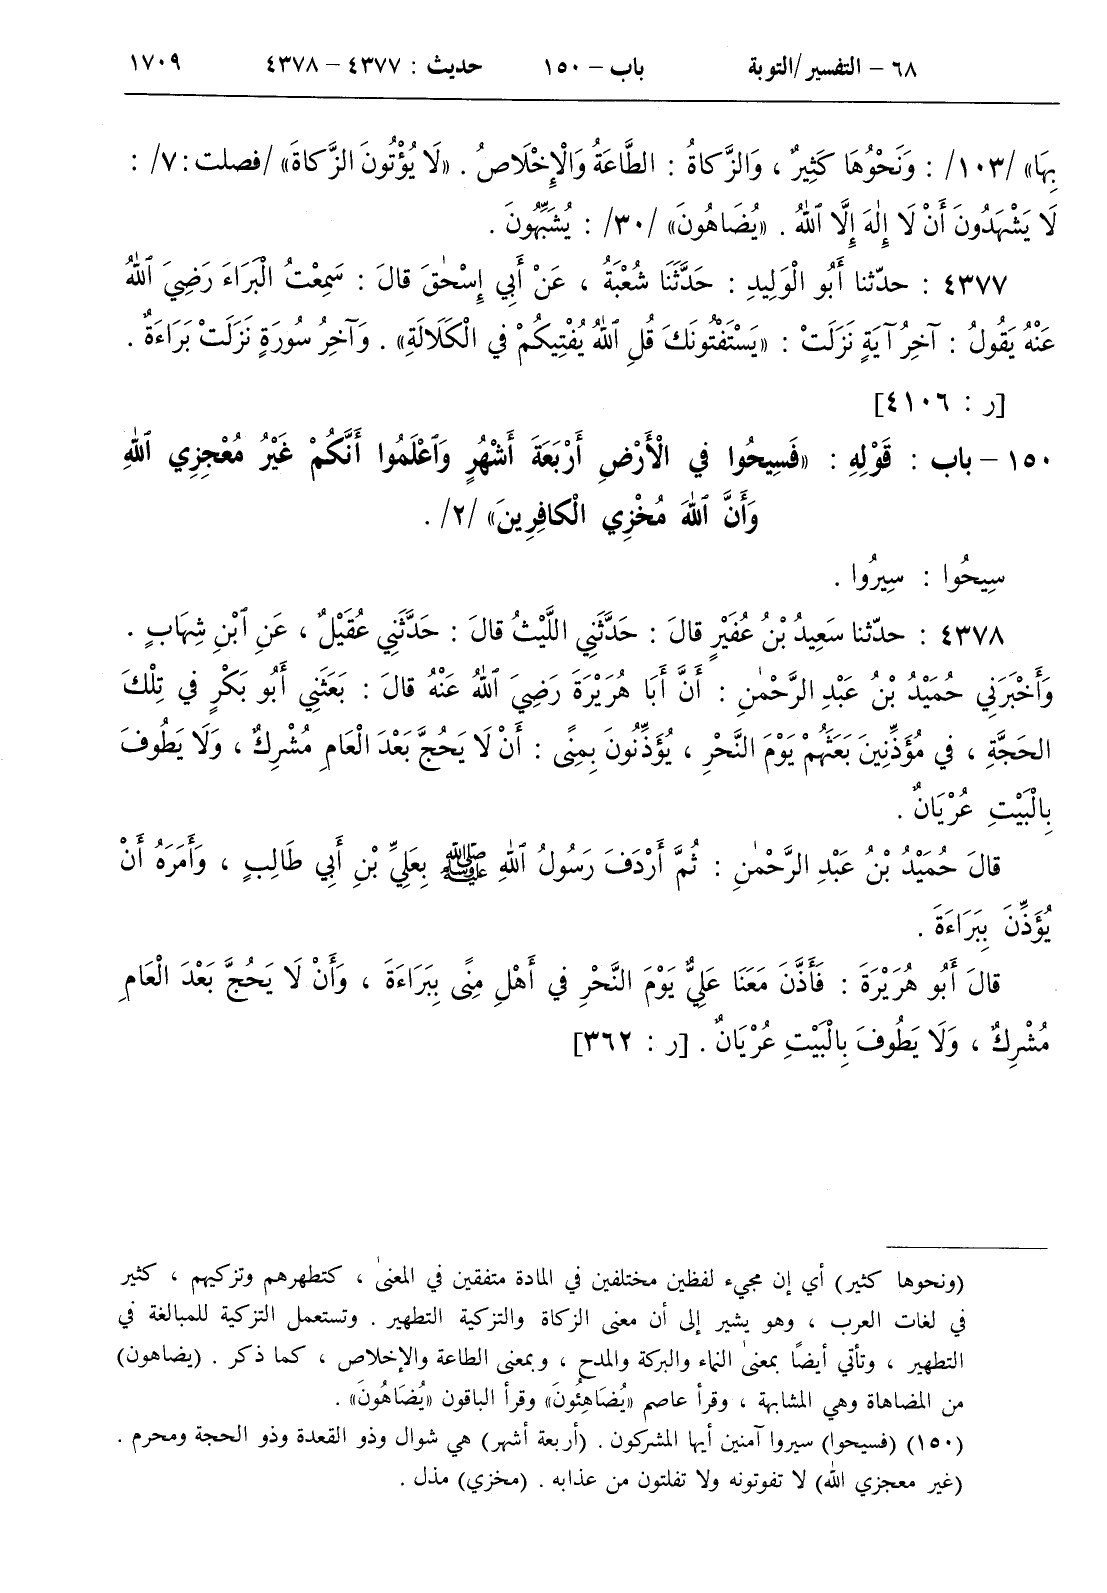 ٦٨ – التفسير/التوبة باب – ١٥٠ حديث : ٤٣٧٧ – ٤٣٧٨ ١٧٠٩
بِهَا» /١٠٣/ : وَنَحْوُهَا كَثِيرٌ ، وَالزَّكاةُ : الطَّاعَةُ وَالْإِخْلَاصُ . «لَا يُؤْتُونَ الزَّكاةَ» /فصلت: ٧/ :
لَا يَشْهَدُونَ أَنْ لَا إِلٰهَ إِلَّا ٱللهُ . «يُضَاهُونَ» /٣٠/ : يُشَبِّهُونَ .
٤٣٧٧ : حدّثنا أَبُو الْوَلِيدِ : حَدَّثَنَا شُعْبَةُ ، عَنْ أَبِي إِسْحٰقَ قالَ : سَمِعْتُ الْبَرَاءَ رَضِيَ ٱللهُ
عَنْهُ يَقُولُ : آخِرُ آيَةٍ نَزَلَتْ : «يَسْتَفْتُونَكَ قُلِ ٱللهُ يُفْتِيكُمْ في الْكَلَالَةِ» . وَآخِرُ سُورَةٍ نَزَلَتْ بَرَاءَةٌ .
[ر : ٤١٠٦]
١٥٠ – باب : قَوْلِهِ : «فَسِيحُوا في الْأَرْضِ أَرْبَعَةَ أَشْهُرٍ وَٱعْلَمُوا أَنَّكُمْ غَيْرُ مُعْجِزِي ٱللهِ
وَأَنَّ ٱللهَ مُخْزِي الْكافِرِينَ» /٢/ .
سِيحُوا : سِيرُوا .
٤٣٧٨ : حدّثنا سَعِيدُ بْنُ عُفَيْرٍ قالَ : حَدَّثَنِي اللَّيْثُ قالَ : حَدَّثَنِي عُقَيْلٌ ، عَنِ ٱبْنِ شِهَابٍ .
وَأَخْبَرَنِي حُمَيْدُ بْنُ عَبْدِ الرَّحْمٰنِ : أَنَّ أَبَا هُرَيْرَةَ رَضِيَ ٱللهُ عَنْهُ قالَ : بَعَثَنِي أَبُو بَكْرٍ في تِلْكَ
الحَجَّةِ ، في مُؤَذِّنِينَ بَعَثَهُمْ يَوْمَ النَّحْرِ ، يُؤَذِّنُونَ بِمِنًى : أَنْ لَا يَحُجَّ بَعْدَ الْعَامِ مُشْرِكٌ ، وَلَا يَطُوفَ
بِالْبَيْتِ عُرْيَانٌ .
قالَ حُمَيْدُ بْنُ عَبْدِ الرَّحْمٰنِ : ثُمَّ أَرْدَفَ رَسُولُ ٱللهِ ﷺ بِعَلِيِّ بْنِ أَبِي طَالِبٍ ، وَأَمَرَهُ أَنْ
يُؤَذِّنَ بِبَرَاءَةَ .
قالَ أَبُو هُرَيْرَةَ : فَأَذَّنَ مَعَنَا عَلِيٌّ يَوْمَ النَّحْرِ في أَهْلِ مِنًى بِبَرَاءَةَ ، وَأَنْ لَا يَحُجَّ بَعْدَ الْعَامِ
مُشْرِكٌ ، وَلَا يَطُوفَ بِالْبَيْتِ عُرْيَانٌ . [ر : ٣٦٢]
(ونحوها كثير) أي إن مجيء لفظين مختلفين في المادة متفقين في المعنىٰ ، كتطهرهم وتزكيهم ، كثير
في لغات العرب ، وهو يشير إلى أن معنى الزكاة والتزكية التطهير . وتستعمل التزكية للمبالغة في
التطهير ، وتأتي أيضاً بمعنىٰ النماء والبركة والمدح ، وبمعنى الطاعة والإخلاص ، كما ذكر . (يضاهون)
من المضاهاة وهي المشابهة ، وقرأ عاصم «يُضَاهِئُونَ» وقرأ الباقون «يُضَاهُونَ» .
(١٥٠) (فسيحوا) سيروا آمنين أيها المشركون . (أربعة أشهر) هي شوال وذو القعدة وذو الحجة ومحرم .
(غير معجزي الله) لا تفوتونه ولا تفلتون من عذابه . (مخزي) مذل .